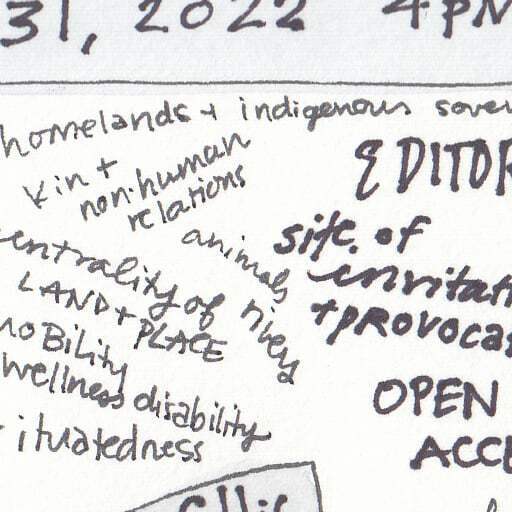 31, 2022 4PM
homelands + indigenous sover
kin +
non-human
relations
animals
rivers
entrality of
LAND + PLACE
mobility
wellness disability
ituatedness
EDITOR
site of
invitat
+ PROVOCA
OPEN
ACCE